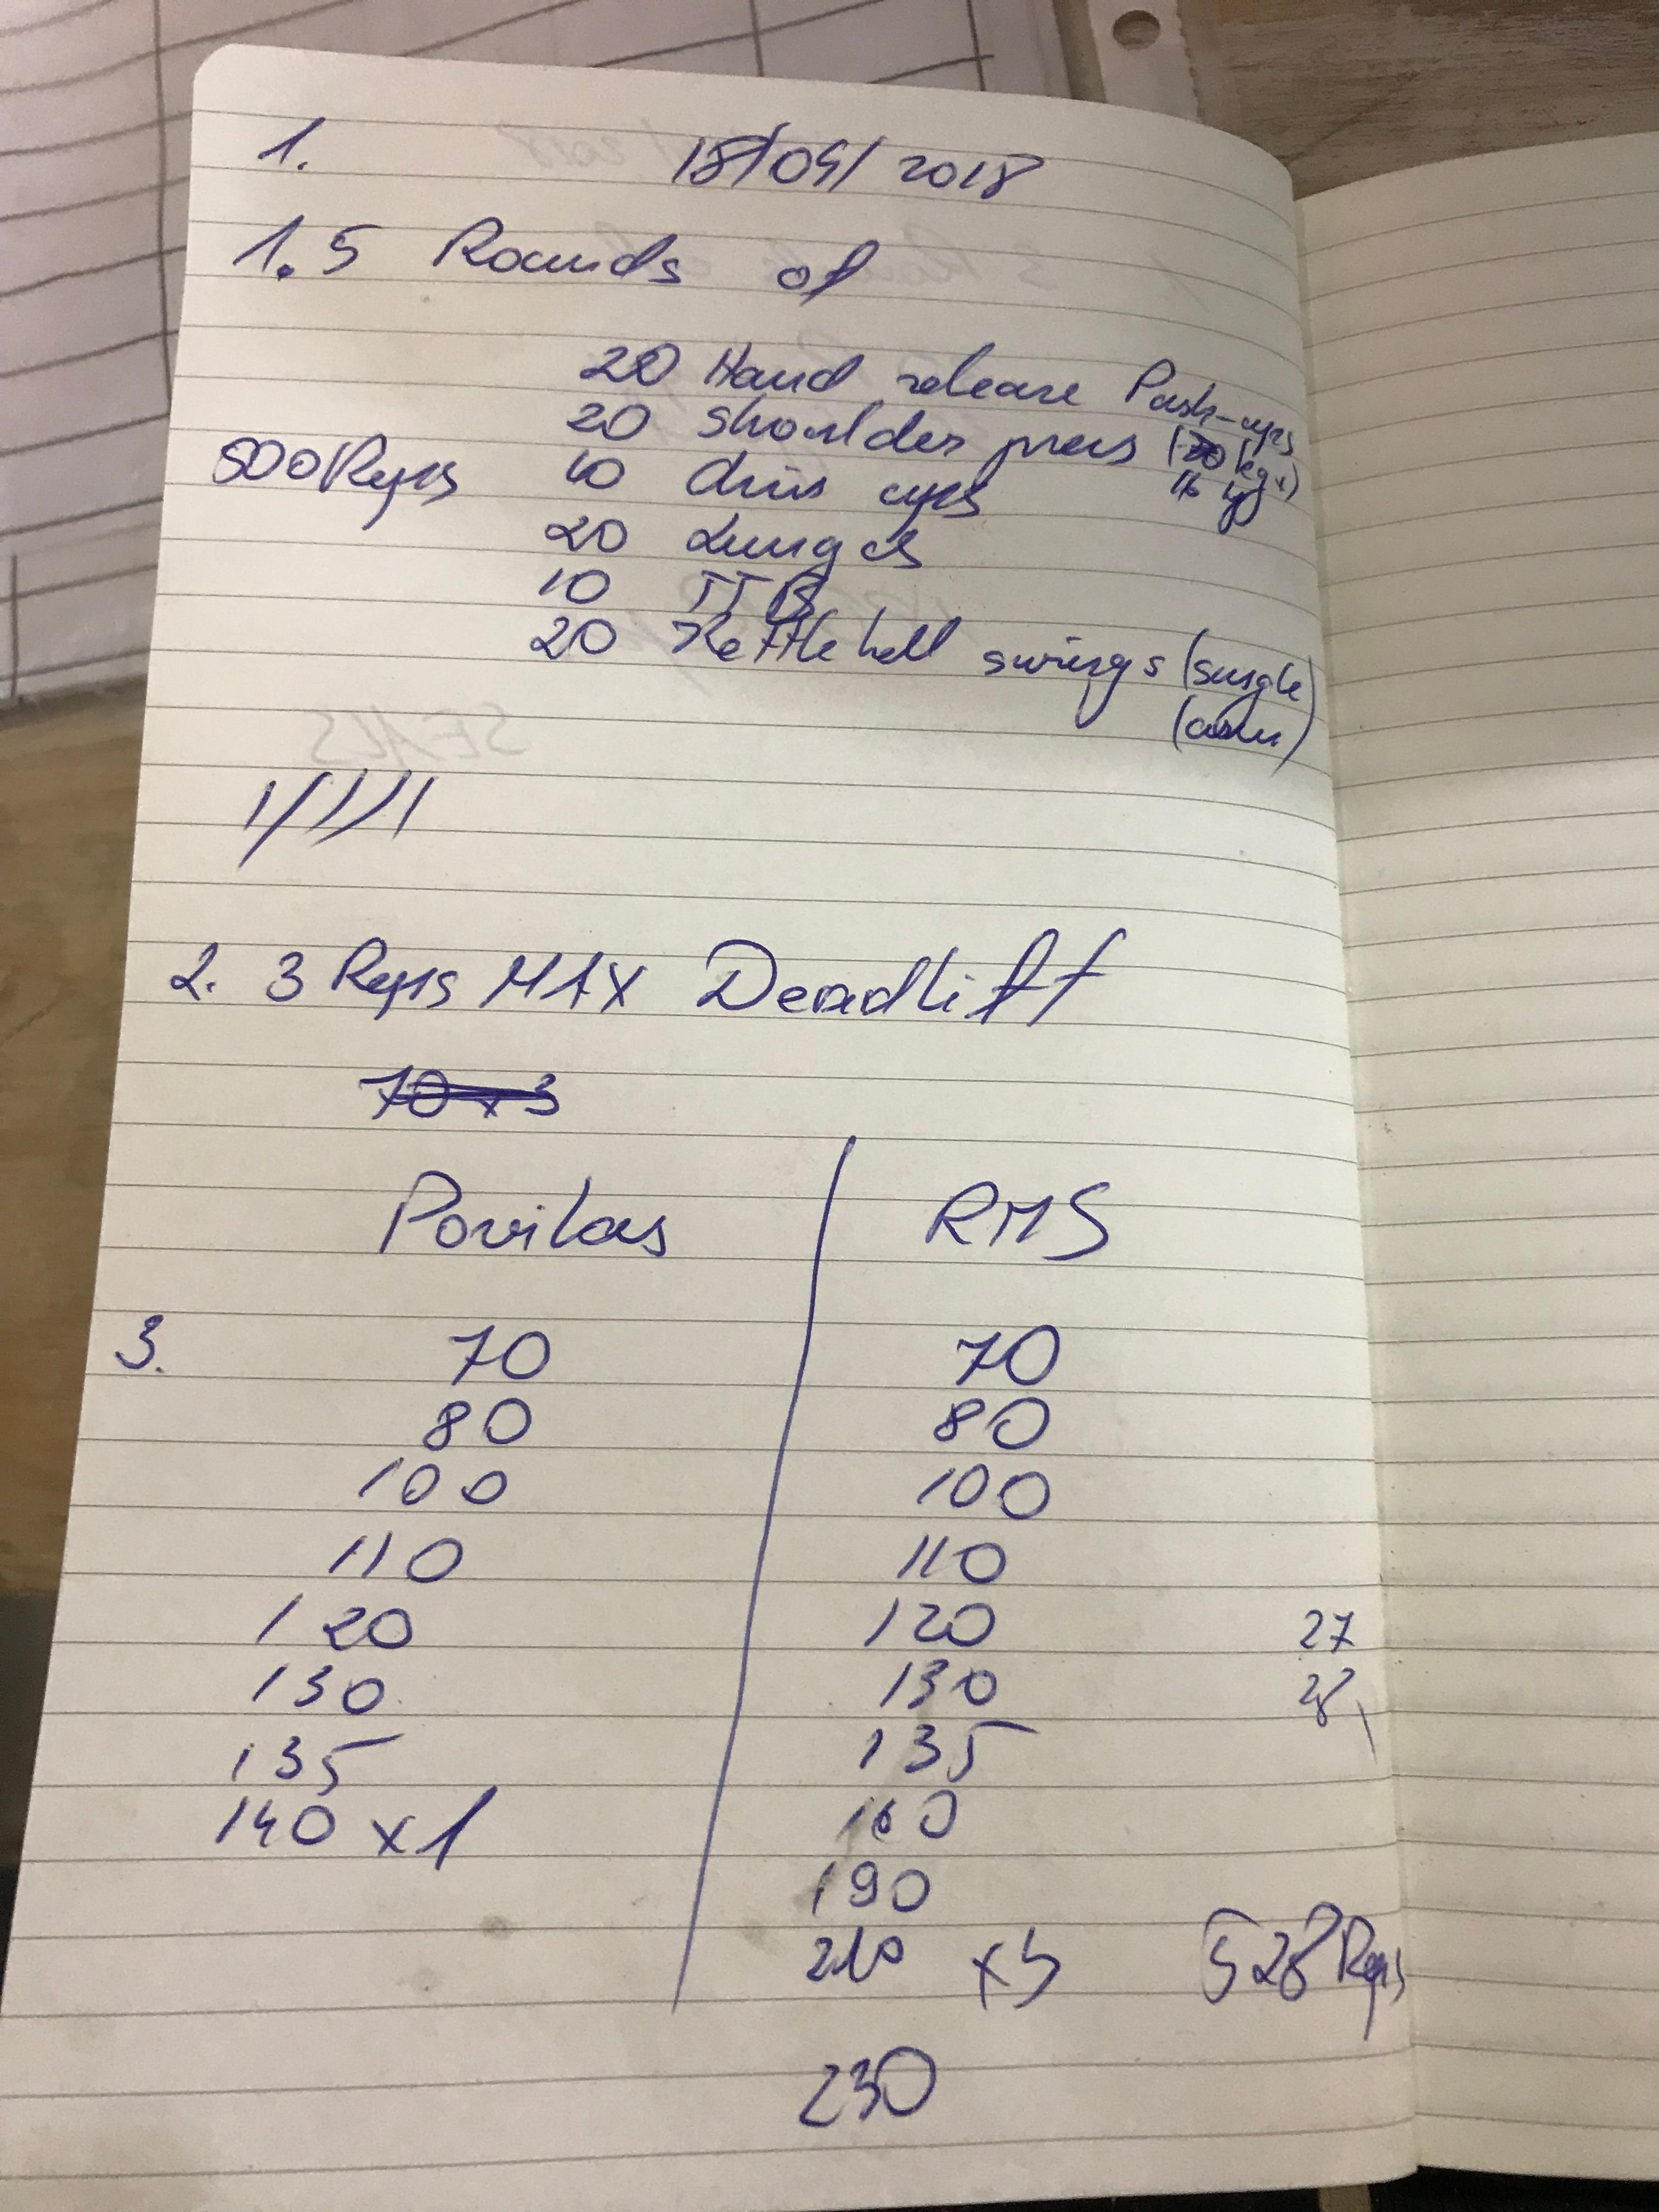 1. 18/09/2018
1.5 Rounds of
20 Hand release Push-ups
20 Shoulder press (20 kg's)
16 kg
500 Reps 10 Chin ups
20 Lunges
10 TTB
20 Kettlebell swings (single
(arm)
2. 3 Reps MAX Deadlift
70 x 3
Povilas RMS
3. 70 70
80 80
100 100
110 110
120 120 27
130 130 28
135 135
140 x1 160
190
210 x5 528 Reps
230
SEALS